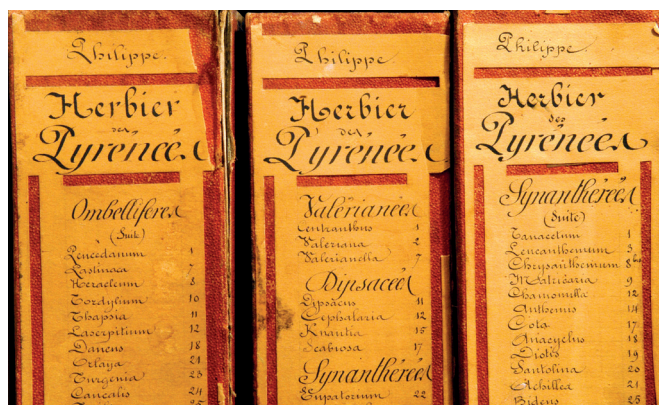 Philippe.
Herbier
des
Pyrénées
Ombellifères
(Suite)
Peucedanum 1
Pastinaca 7
Heracleum 8
Tordylium 10
Thapsia 11
Laserpitium 12
Daucus 18
Orlaya 21
Turgenia 23
Caucalis 24
Philippe.
Herbier
des
Pyrénées
Valérianées
Centranthus 1
Valeriana 2
Valerianella 7
Dipsacées
Dipsacus 11
Cephalaria 12
Knautia 15
Scabiosa 17
Synanthérées
Eupatorium 22
Philippe.
Herbier
des
Pyrénées
Synanthérées
(Suite)
Tanacetum 1
Leucanthemum 3
Chrysanthemum 8 bis
Matricaria 9
Chamomilla 12
Anthemis 14
Cota 17
Anacyclus 18
Diotis 19
Santolina 20
Achillea 21
Bidens 25